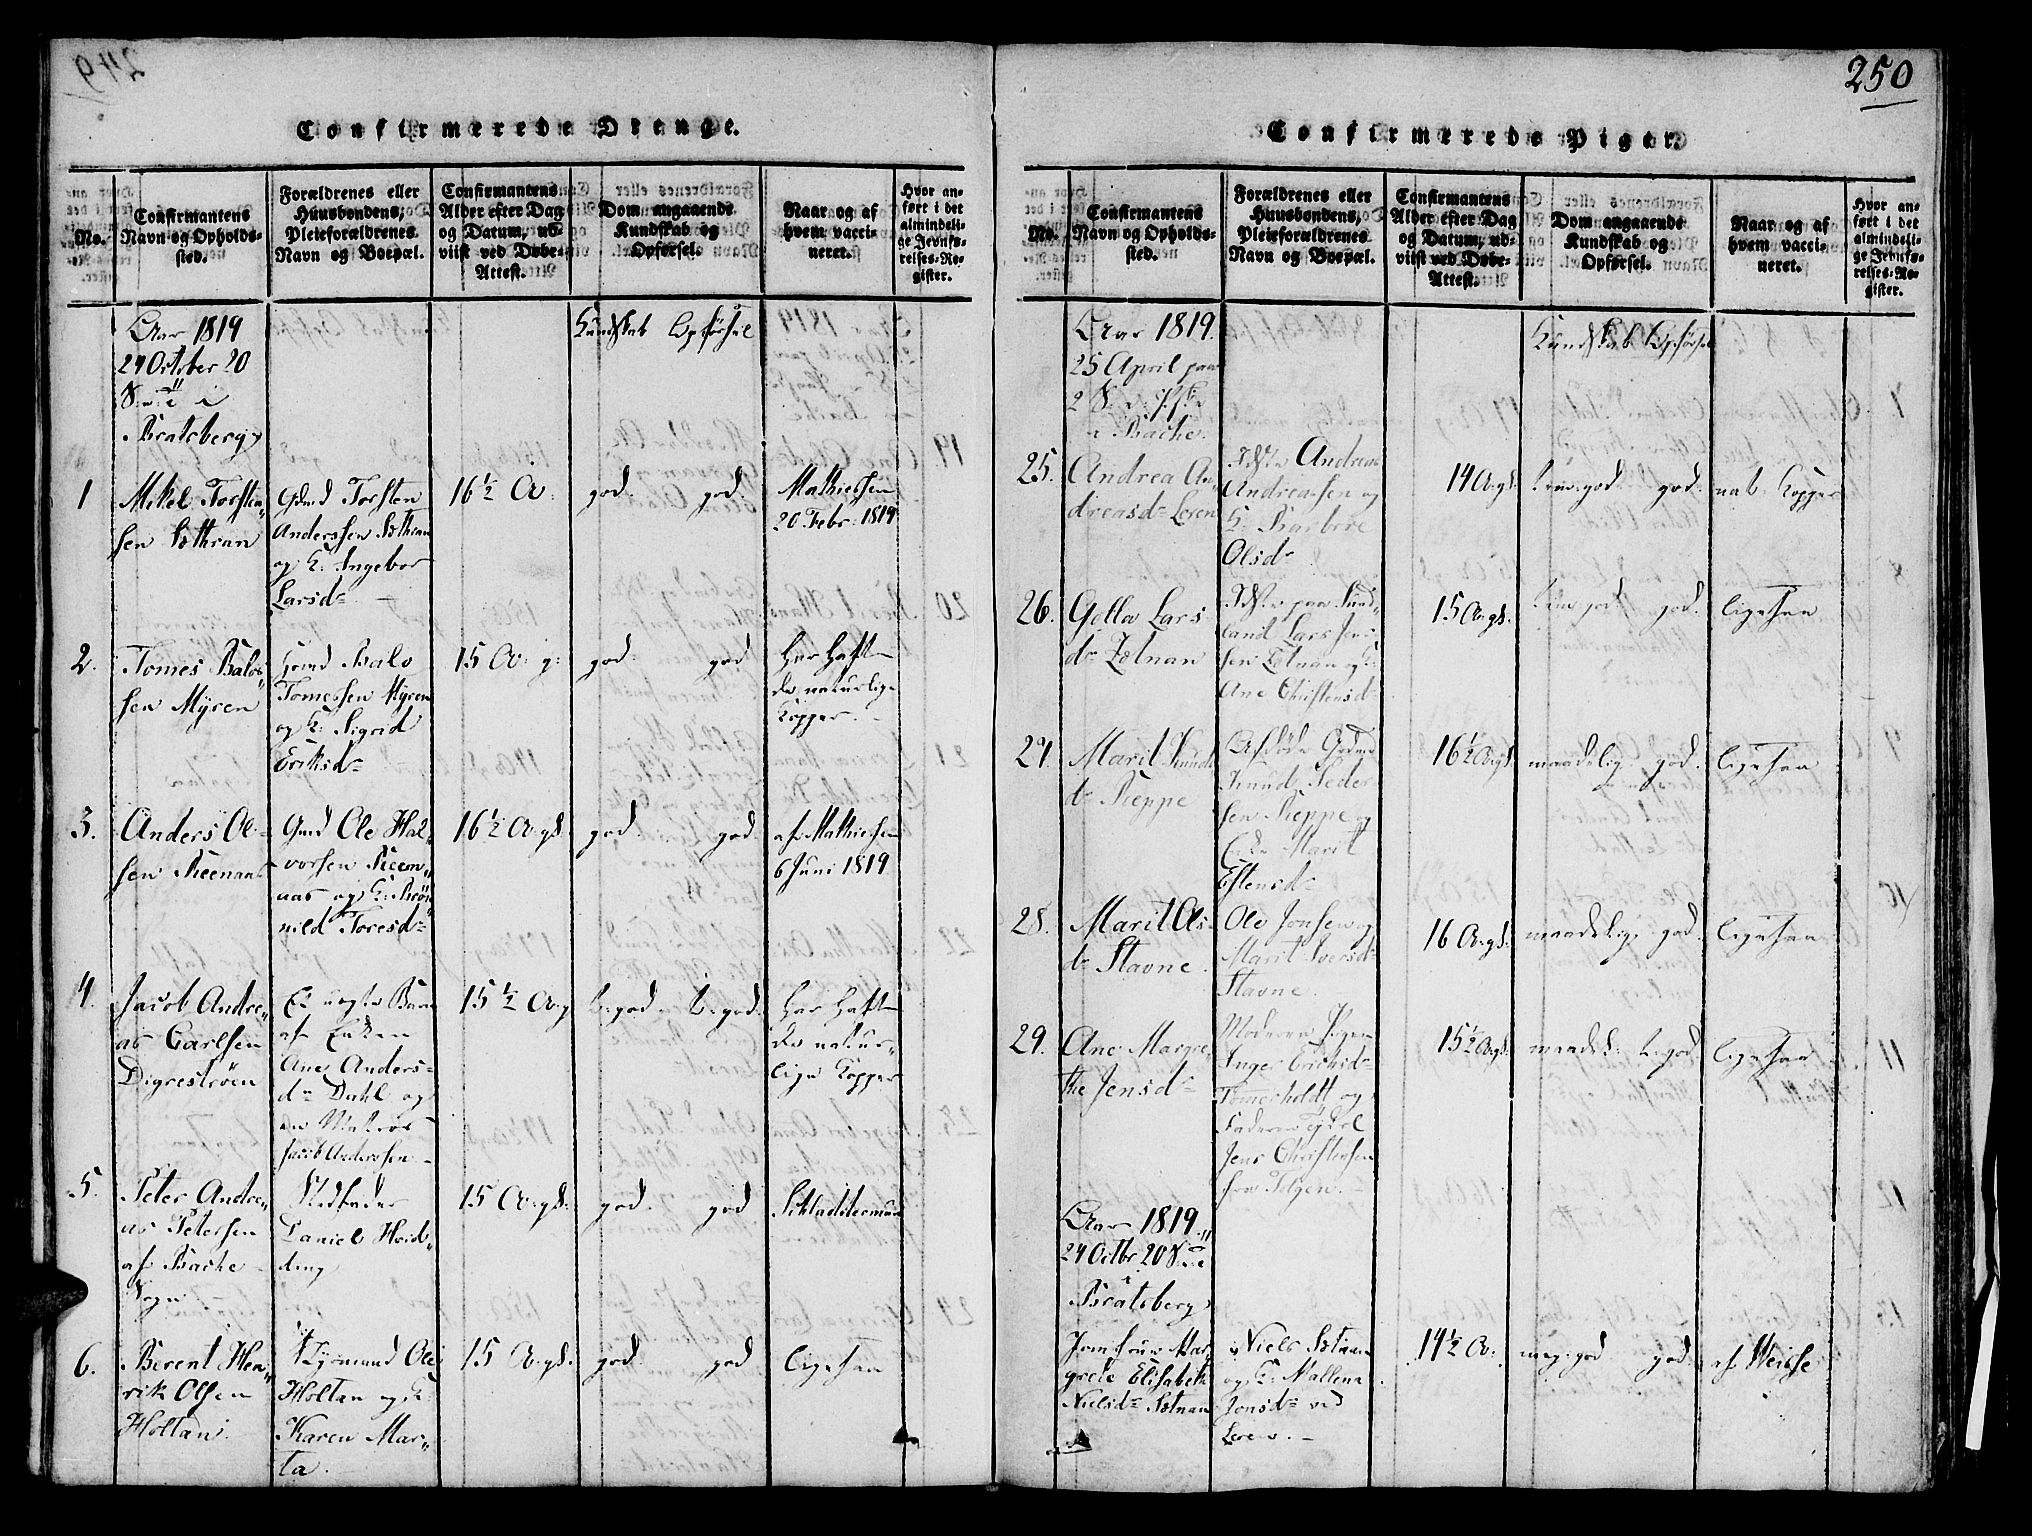 250
Confirmerede Drenge.
No.
Confirmantens
Navn og Opholds-
sted.
Forældrenes eller
Huusbondens,
Pleieforældrenes
Navn og Boepæl.
Confirmantens
Alder efter Dag
og Datum, ud-
viist ved Døbe-
Attest.
Dom angaaende
Kundskab og
Opførsel.
Naar og af
hvem vacci-
neret.
Hvor an-
ført i det
almindeli-
ge Jevnfø-
relses-Re-
gister.
Aar 1819
24 October 20
S: i
Bratsberg
Kundskab Opførsel
1
Mikel Torsten„
sen Sothran
Gmd Torsten
Anderssen Sothran
og K: Ingebor
Larsd
16½ A:
god. god.
Mathiessen
20 Febr: 1819
2.
Tomes Balo„
sen Myren
Gmd Balo
Tomessen Myren
og K: Sigrid
Eriksd
15 A: g:
god. god
Har haft
de naturlige
Kopper.
3.
Anders Ol-
sen Reenaas
Gmd Ole Hal„
vorsen Reen„
aas og K:
nild Toresd
16½ A:gl.
god. god.
af Mathiessen
6 Juni 1819
4.
Jacob Andre„
as Carlsen
Digrestrøen
Et uægte Barn
af Enken
Ane Anders-
d Dahl og
en Matros
Jacob Anderssen
15½ A:g
t:god. t:god.
Har haft
de natur„
lige Kopper
5.
Peter Andre„
as Petersen
af Bache
Sogn
Stedfader
Daniel Hvid„
ding
15 A:gl.
god. god
Schladdermun
6.
Berent Hen„
rik Olsen
Holtan.
Ole
Holtan og K:
Karen Mar„
ta
15 A:gl.
god. god
ligesaa
Confirmerede Piger.
No.
Confirmantens
Navn og Opholds-
sted.
Forældrenes eller
Huusbondens,
Pleieforældrenes
Navn og Boepæl.
Confirmantens
Alder efter Dag
og Datum, ud-
viist ved Døbe-
Attest.
Dom angaaende
Kundskab og
Opførsel.
Naar og af
hvem vacci-
neret.
Hvor an-
ført i det
almindeli-
ge Jevnfø-
relses-Re-
gister.
Aar 1819.
25 April paa
2 S:
i Bache.
Kundskab Opførsel
25.
Andrea An„
dreasd Leren
Andreas
Andreassen og
K: Barbroe
Olsd
14 A:gl.
god god.
nat: Kopper
26.
Golla Lars
d Zetnan
paa Sund„
land Lars Jens
sen Zetnan og
Ane Christensd
15 A:gl.
god god.
ligesaa
27.
Marit Knuds
d Reppe
Afdøde Gdmd
Knud Peder
sen Reppe og
Enke Marit
Estensd
16½ A:gl.
maadelig god.
ligesaa
28.
Marit Ols
d Stavne.
Ole Jonsen og
Marit Iversd
Stavne.
16 A:gl.
maadelig god.
ligesaa
29.
Ane Margre„
the Jensd
Moderen Pigen
Inger Erichsd
Tomesholdt og
Faderen
Jens Christensen
fra Tolgen.
15½ A:gl.
maadel: t:god
ligesaa
Aar 1819
24 Octbr 20 S:
i
Bratsberg
Jomfrue Mar„
grete Elisabeth
Nielsd Sætnan
Niels Sætnan
og K: Mallena
Jonsd ved
Leren.
14½ A:
meg:god god
af Weisse